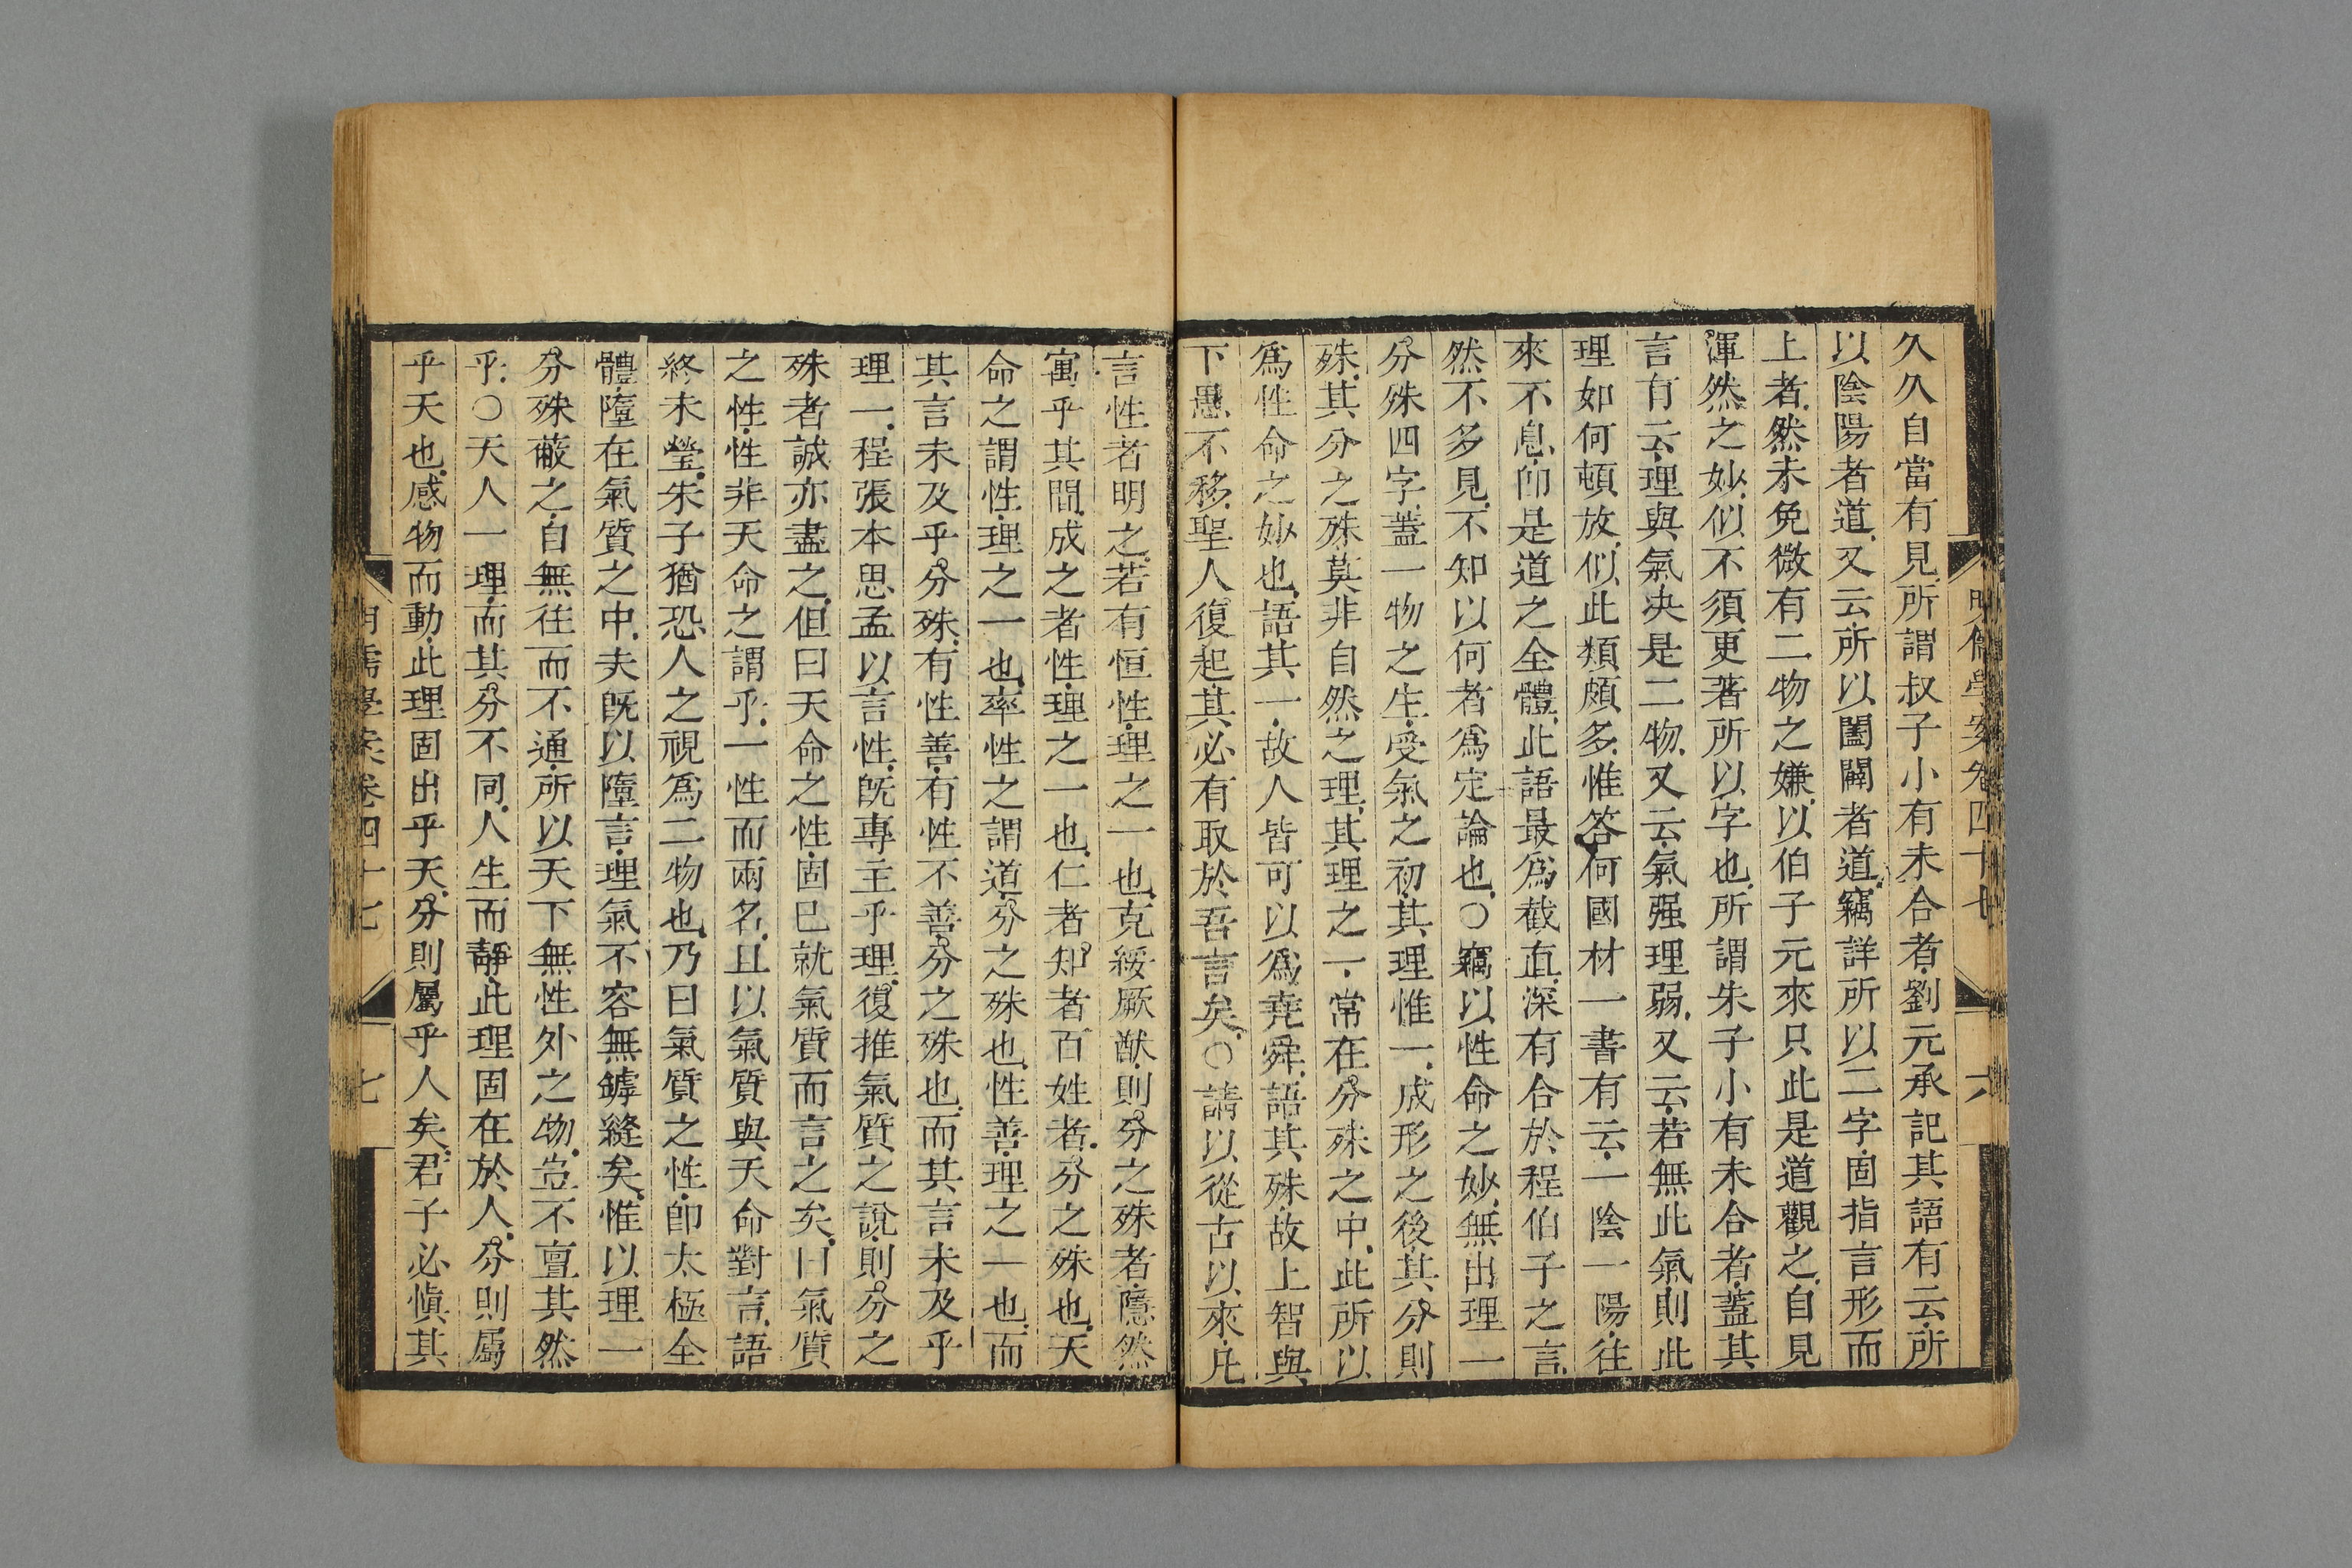 久久自當有見所謂叔子小有未合者劉元承記其語有云所
以陰陽者道又云所以闔闢者道竊詳所以二字固指言形而
上者然未免微有二物之嫌以伯子元來只此是道觀之自見
渾然之妙似不須更著所以字也所謂朱子小有未合者蓋其
言有云理與氣決是二物又云氣强理弱又云若無此氣則此
理如何頓放似此類頗多惟答何國材一書有云一陰一陽往
來不息卽是道之全體此語最爲截直深有合於程伯子之言
然不多見不知以何者爲定論也○竊以性命之妙無出理一
分殊四字蓋一物之生受氣之初其理惟一成形之後其分則
殊其分之殊莫非自然之理其理之一常在分殊之中此所以
爲性命之妙也語其一故人皆可以爲堯舜語其殊故上智與
下愚不移聖人復起其必有取於吾言矣○請以從古以來凡
言性者明之若有恒性理之一也克綏厥猷則分之殊者隱然
寓乎其間成之者性理之一也仁者知者百姓者分之殊也天
命之謂性理之一也率性之謂道分之殊也性善理之一也而
其言未及乎分殊有性善有性不善分之殊也而其言未及乎
理一程張本思孟以言性旣專主乎理復推氣質之說則分之
殊者誠亦盡之但曰天命之性固已就氣質而言之矣曰氣質
之性性非天命之謂乎一性而兩名且以氣質與天命對言語
終未瑩朱子猶恐人之視爲二物也乃曰氣質之性卽太極全
體墮在氣質之中夫旣以墮言理氣不容無罅縫矣惟以理一
分殊蔽之自無往而不通所以天下無性外之物豈不亶其然
乎○天人一理而其分不同人生而靜此理固在於人分則屬
乎天也感物而動此理固出乎天分則屬乎人矣君子必愼其
明儒學案卷四十七
六
明儒學案卷四十七
七